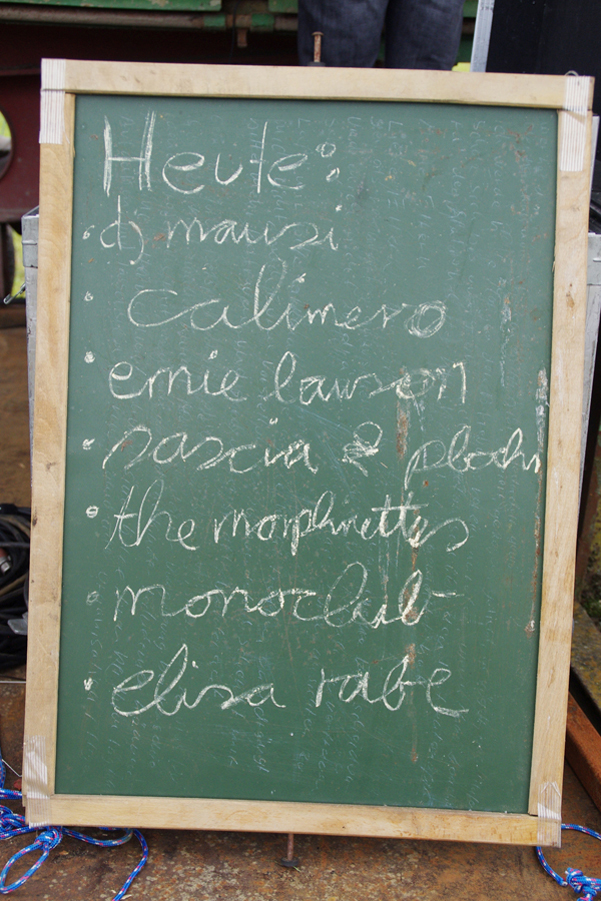 Heute:
• dj mausi
• calimero
• ernie lawson
• sascia & plochi
• the morphinettes
• monoclub
• elisa rabe